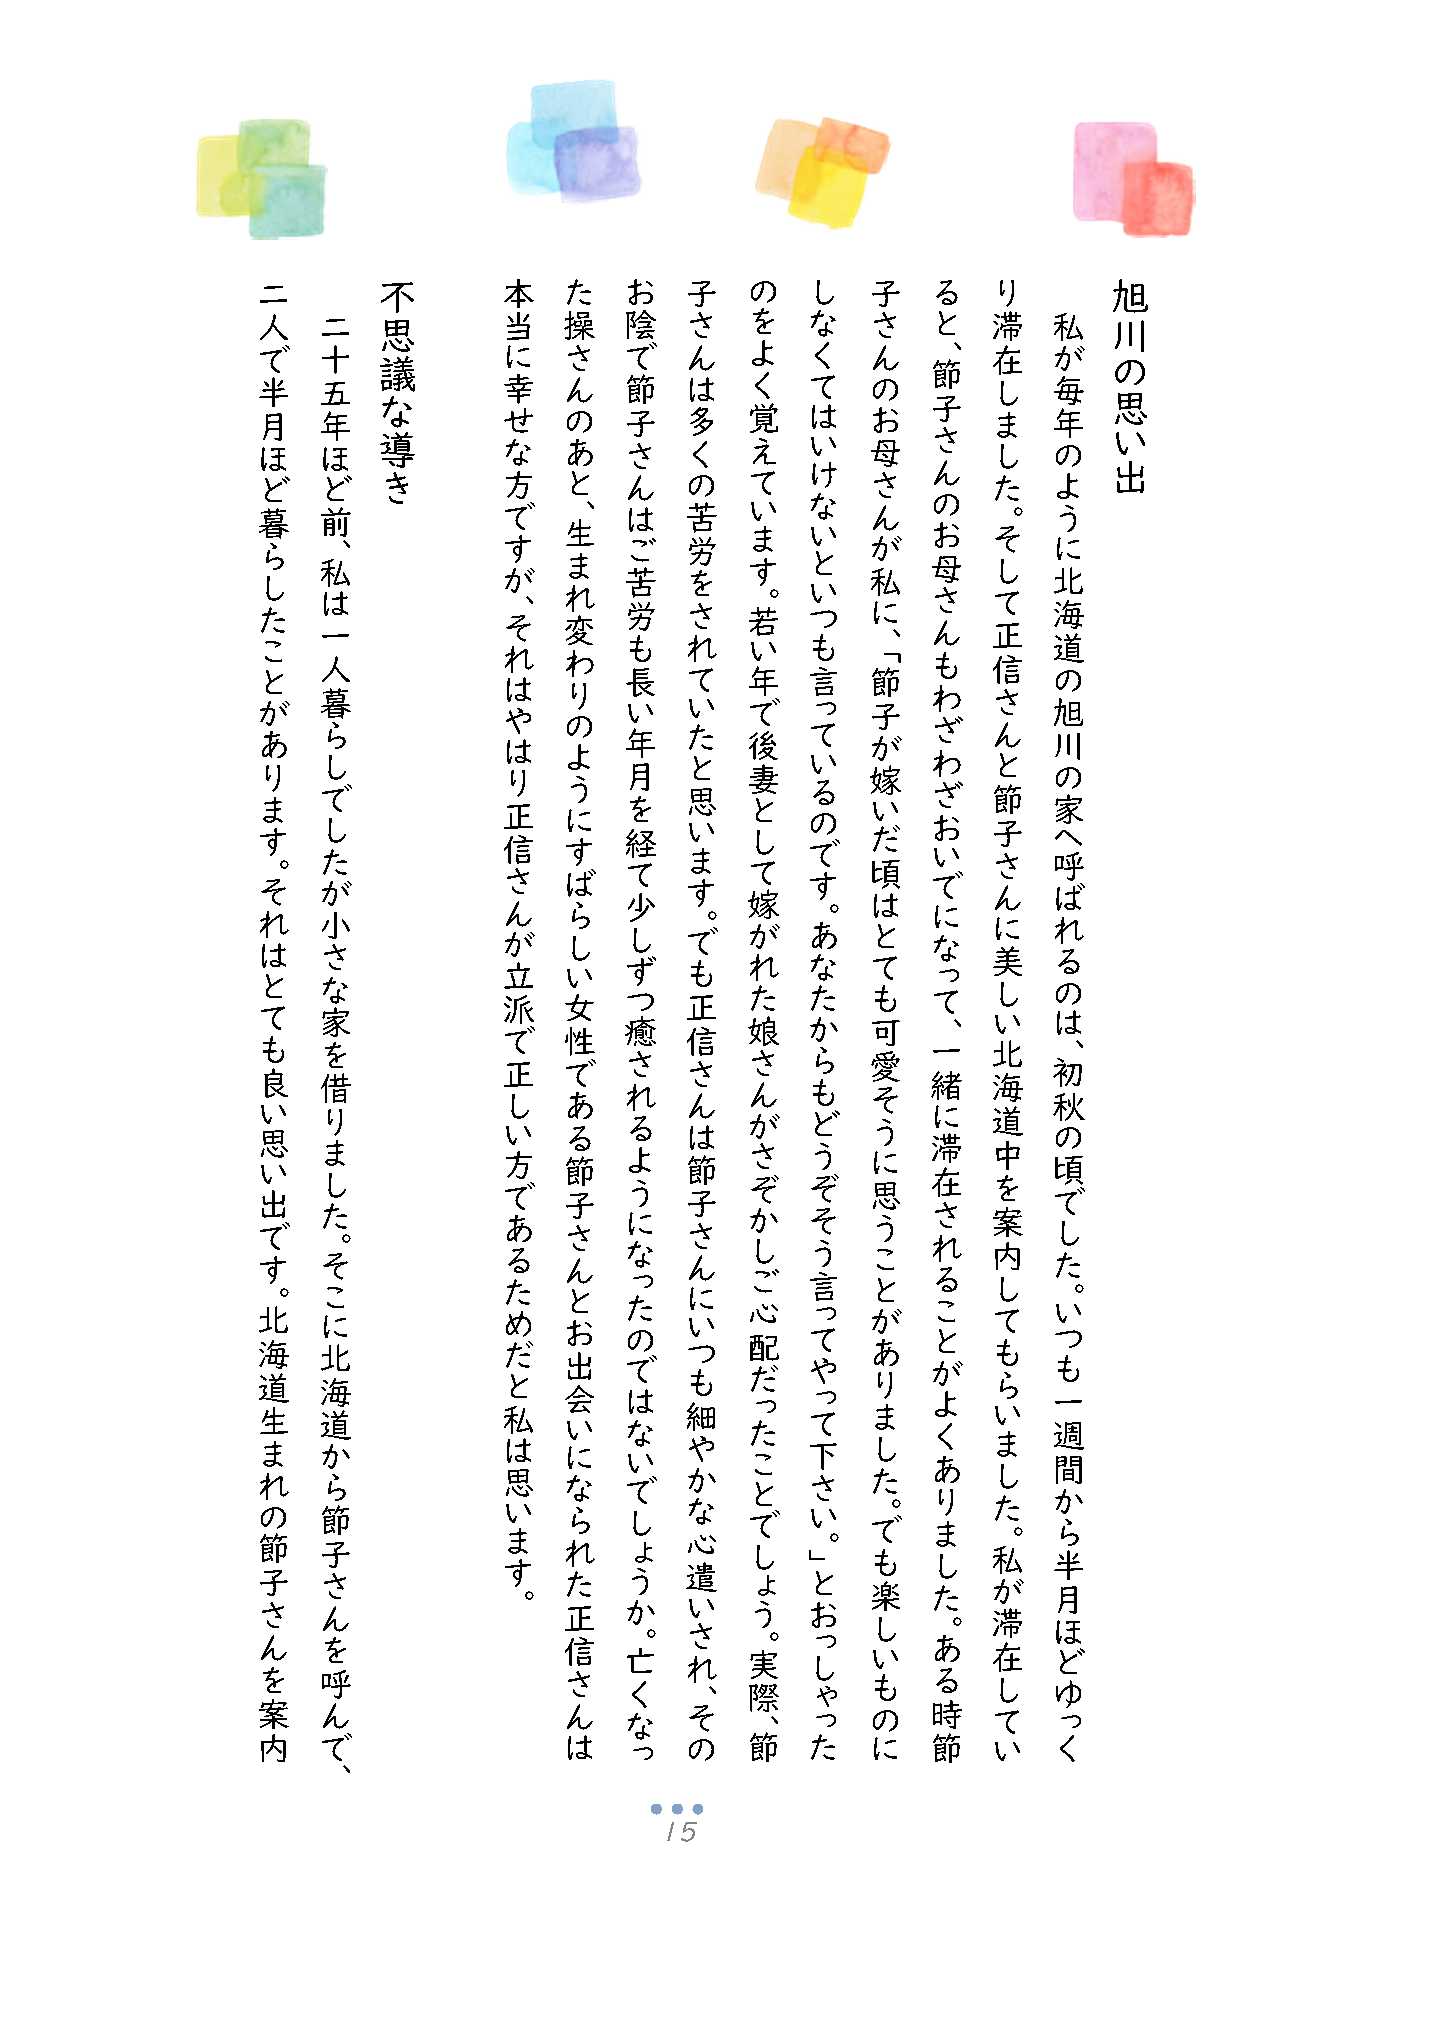 旭川の思い出
私が毎年のように北海道の旭川の家へ呼ばれるのは、初秋の頃でした。いつも一週間から半月ほどゆっく
り滞在しました。そして正信さんと節子さんに美しい北海道中を案内してもらいました。私が滞在してい
ると、節子さんのお母さんもわざわざおいでになって、一緒に滞在されることがよくありました。ある時節
子さんのお母さんが私に、「節子が嫁いだ頃はとても可愛そうに思うことがありました。でも楽しいものに
しなくてはいけないといつも言っているのです。あなたからもどうぞそう言ってやって下さい。」とおっしゃった
のをよく覚えています。若い年で後妻として嫁がれた娘さんがさぞかしご心配だったことでしょう。実際、節
子さんは多くの苦労をされていたと思います。でも正信さんは節子さんにいつも細やかな心遣いされ、その
お陰で節子さんはご苦労も長い年月を経て少しずつ癒されるようになったのではないでしょうか。亡くなっ
た操さんのあと、生まれ変わりのようにすばらしい女性である節子さんとお出会いになられた正信さんは
本当に幸せな方ですが、それはやはり正信さんが立派で正しい方であるためだと私は思います。
不思議な導き
二十五年ほど前、私は一人暮らしでしたが小さな家を借りました。そこに北海道から節子さんを呼んで、
二人で半月ほど暮らしたことがあります。それはとても良い思い出です。北海道生まれの節子さんを案内
15